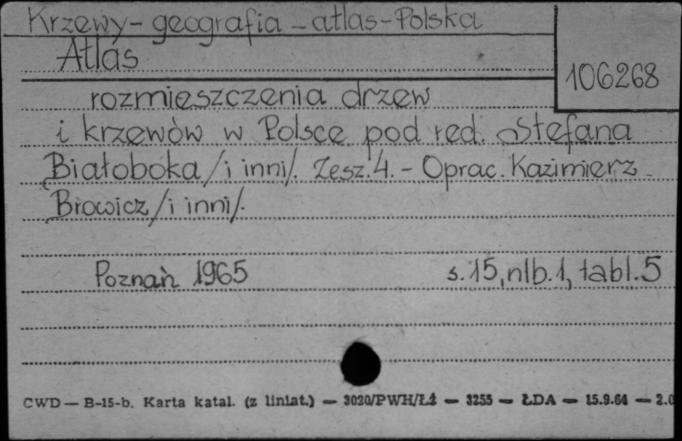 Krzewy - geografia - atlas - Polska
Atlas
106268
rozmieszczenia drzew
i krzewów w Polsce pod red. Stefana
Białoboka /i inni/. Zesz. 4. - Oprac. Kazimierz
Browicz /i inni/.
Poznań 1965 s. 15, nlb. 1, tabl. 5
CWD — B-15-b. Karta katal. (z liniat.) — 3020/PWH/Łź — 3255 — ŁDA — 15.9.64 — 2.0